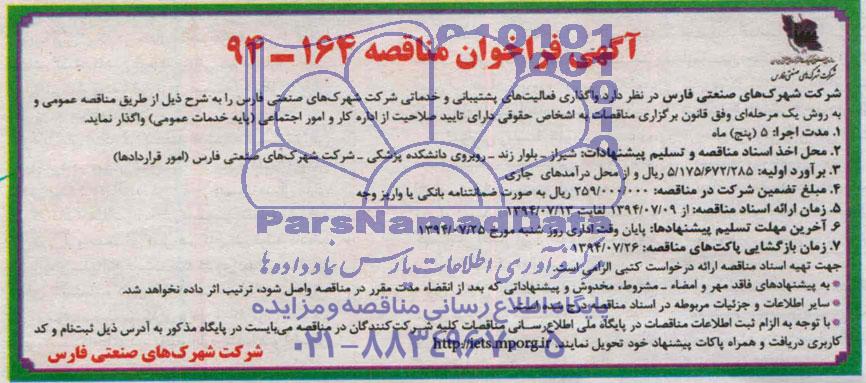 آگهی فراخوان مناقصه ۱۶۴ – ۹۴
شرکت شهرک‌های صنعتی فارس
شرکت شهرک‌های صنعتی فارس در نظر دارد واگذاری فعالیت‌های پشتیبانی و خدماتی شرکت شهرک‌های صنعتی فارس را به شرح ذیل از طریق مناقصه عمومی و
به روش یک مرحله‌ای وفق قانون برگزاری مناقصات به اشخاص حقوقی دارای تایید صلاحیت از اداره کار و امور اجتماعی (پایه خدمات عمومی) واگذار نماید.
۱. مدت اجرا: ۵ (پنج) ماه
۲. محل اخذ اسناد مناقصه و تسلیم پیشنهادات: شیراز ـ بلوار زند ـ روبروی دانشکده پزشکی ـ شرکت شهرک‌های صنعتی فارس (امور قراردادها)
۳. برآورد اولیه: ۵/۱۷۵/۶۷۲/۲۸۵ ریال و از محل درآمدهای جاری
۴. مبلغ تضمین شرکت در مناقصه: ۲۵۹/۰۰۰/۰۰۰ ریال به صورت ضمانتنامه بانکی یا واریز وجه
۵. زمان ارائه اسناد مناقصه: از ۱۳۹۴/۰۷/۰۹ لغایت ۱۳۹۴/۰۷/۱۳
۶. آخرین مهلت تسلیم پیشنهادها: پایان وقت اداری روز شنبه مورخ ۱۳۹۴/۰۷/۲۵
۷. زمان بازگشایی پاکت‌های مناقصه: ۱۳۹۴/۰۷/۲۶
جهت تهیه اسناد مناقصه ارائه درخواست کتبی الزامی است.
* به پیشنهادهای فاقد مهر و امضاء ـ مشروط، مخدوش و پیشنهاداتی که بعد از انقضاء مدت مقرر در مناقصه واصل شود، ترتیب اثر داده نخواهد شد.
* سایر اطلاعات و جزئیات مربوطه در اسناد مناقصه درج شده است.
* با توجه به الزام ثبت اطلاعات مناقصات در پایگاه ملی اطلاع‌رسانی مناقصات کلیه شرکت‌کنندگان در مناقصه می‌بایست در پایگاه مذکور به آدرس ذیل ثبت‌نام و کد
کاربری دریافت و همراه پاکات پیشنهاد خود تحویل نمایند. http://iets.mporg.ir
شرکت شهرک‌های صنعتی فارس
ParsNamadData
مرکز فرآوری اطلاعات پارس نماد داده‌ها
پایگاه اطلاع رسانی مناقصه و مزایده
۰۲۱-۸۸۳۴۹۶۷۰-۵